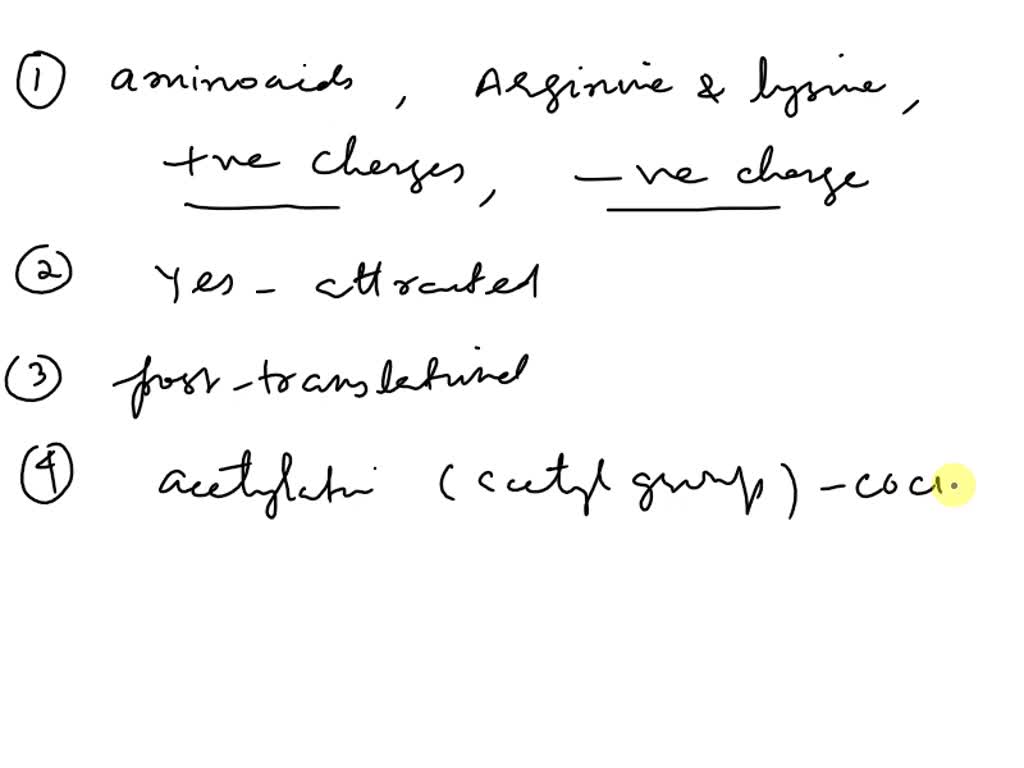 ① aminoaids, Arginine & lysine,
+ve charges, -ve charge
② Yes - attracted
③ post-translational
④ acetylation (acetyl group) - coc